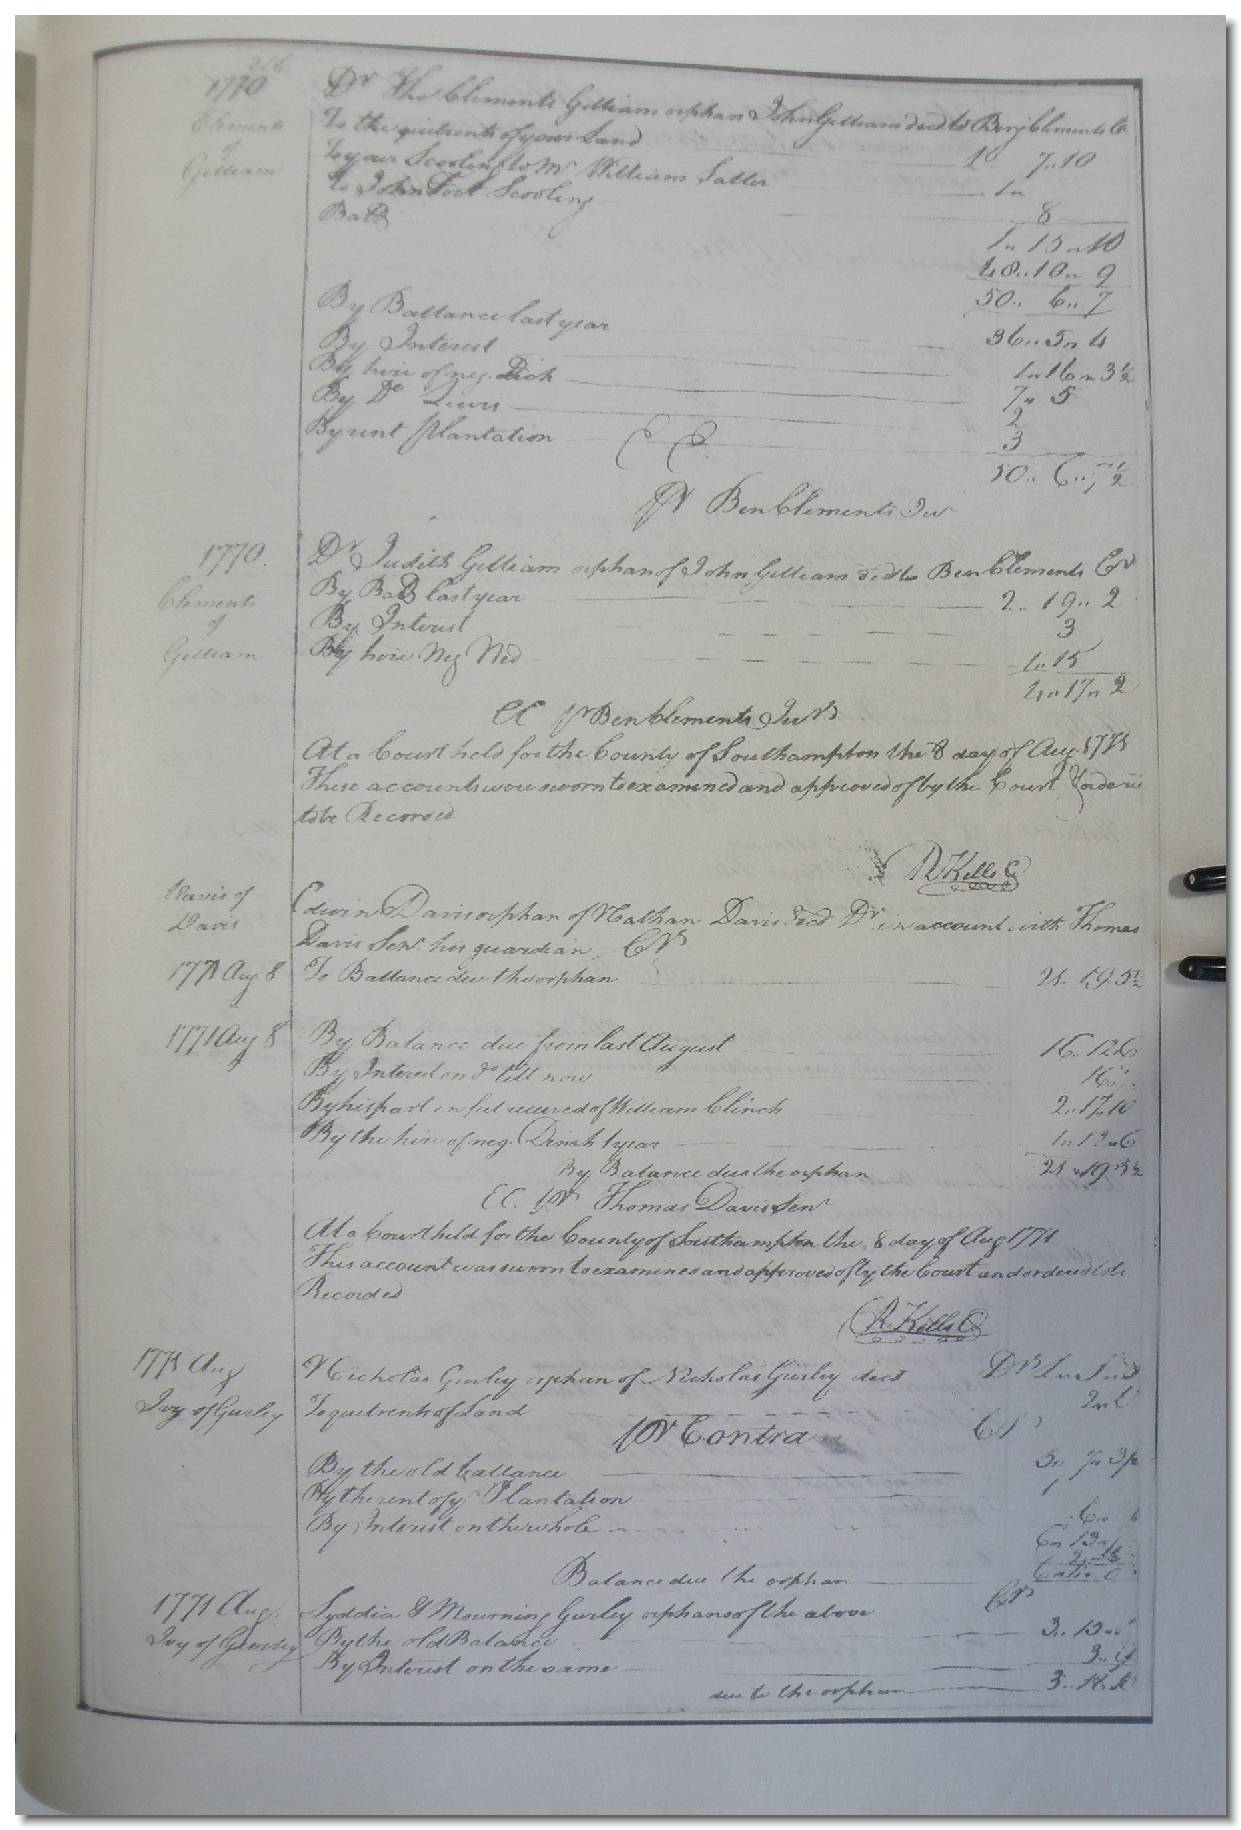 216
1770
Clements
of
Gilliam
Dr Tho Clements Gilliam orphan John Gilliam decd to Benj Clements Cr
To the quitrents of your Land 7..10
To your Scooling to Mr William Salter 1..
To John Fort Scooling 8
Balle
1.. 15..10
48..10.. 9
50.. 6.. 7
By Ballance last year 36..5..4
By Interest 1..16..3½
By hire of neg. Dick 7.. 5
By Do Lewis 2
By rent Plantation 3
E E. 50.. 6..7½
Pr Ben Clements Junr
1770.
Clements
of
Gilliam
Dr Judith Gilliam orphan of John Gilliam decd to Ben Clements Cr
By Balle last year 2.. 19.. 2
By Interest 3
By hire Neg Ned 1..15
4..17..2
EE Pr Ben Clements Junr
At a Court held for the County of Southampton the 8 day of Aug 1771
These accounts were sworn to examined and approved of by the Court & ordered
to be Recorded
R Kello C
Davis of
Davis
Edwin Davis orphan of Nathan Davis decd Dr in account with Thomas
Davis Senr his guardian Cr
1771 Aug 8 To Ballance due the orphan 21.. 19.5½
1771 Aug 8 By Balance due from last August 16..
By Interest on do till now 16
By his part in full received of William Clinch 2..17..10
By the hire of neg. Dinah 1 year 1..12..6
By Balance due the orphan 21..19..5½
EE. Pr Thomas Davis Senr
At a Court held for the County of Southampton the 8 day of Aug 1771
This account was sworn to examined and approved of by the Court and ordered to be
Recorded
R. Kello C
1771 Aug
Ivy of Gurley
Nicholas Gurley orphan of Nicholas Gurley decd Dr
To quitrents of Land
Pr Contra Cr
By the old ballance 5.. 7..
By the rent of ye Plantation 1
By Interest on the whole
Balance due the orphan
1771 Aug.
Ivy of Gurley
Lyddia & Mourning Gurley orphans of the above Cr
By the old Balance 3.. 13
By Interest on the same 3..
due to the orphan 3..